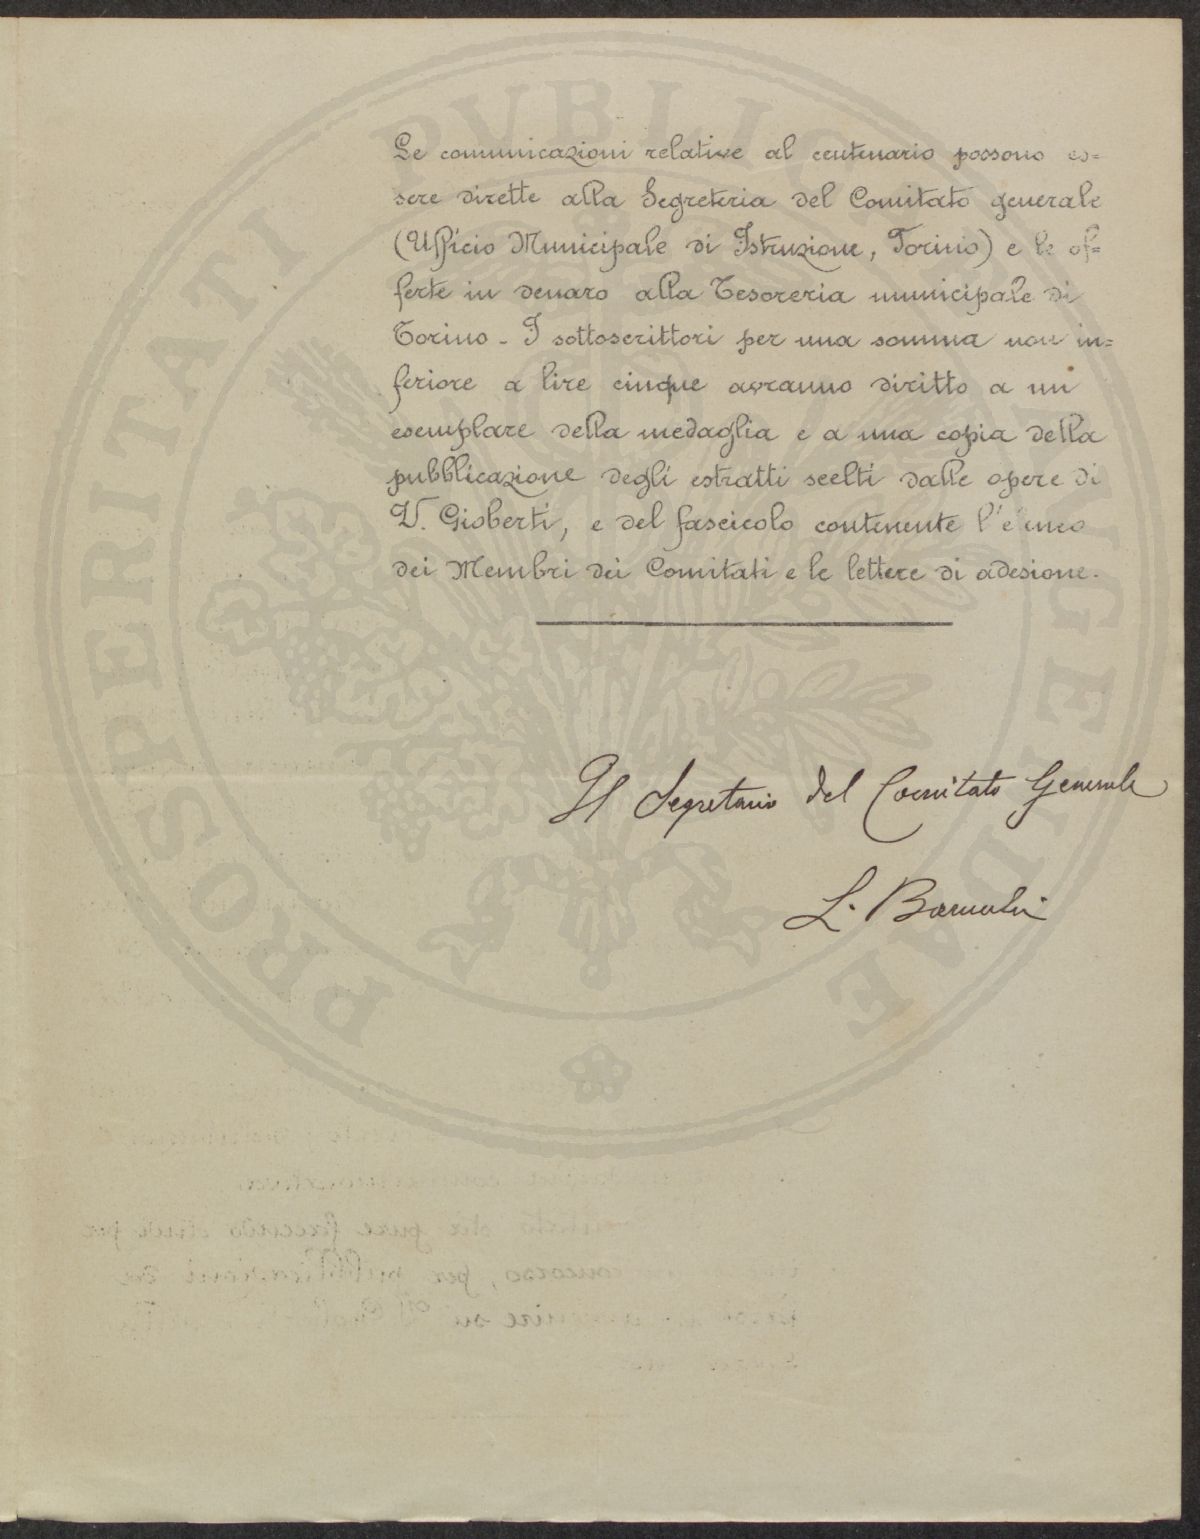 Le comunicazioni relative al centenario possono es=
sere dirette alla Segreteria del Comitato generale
(Ufficio Municipale di Istruzione, Torino) e le of=
ferte in denaro alla Tesoreria municipale di
Torino - I sottoscrittori per una somma non in=
feriore a lire cinque avranno diritto a un
esemplare della medaglia e a una copia della
pubblicazione degli estratti scelti dalle opere di
V. Gioberti, e del fascicolo contenente l'elenco
dei Membri dei Comitati e le lettere di adesione.
Il Segretario del Comitato Generale
L.
PROSPERITATI PVBLICAE AVGENDAE